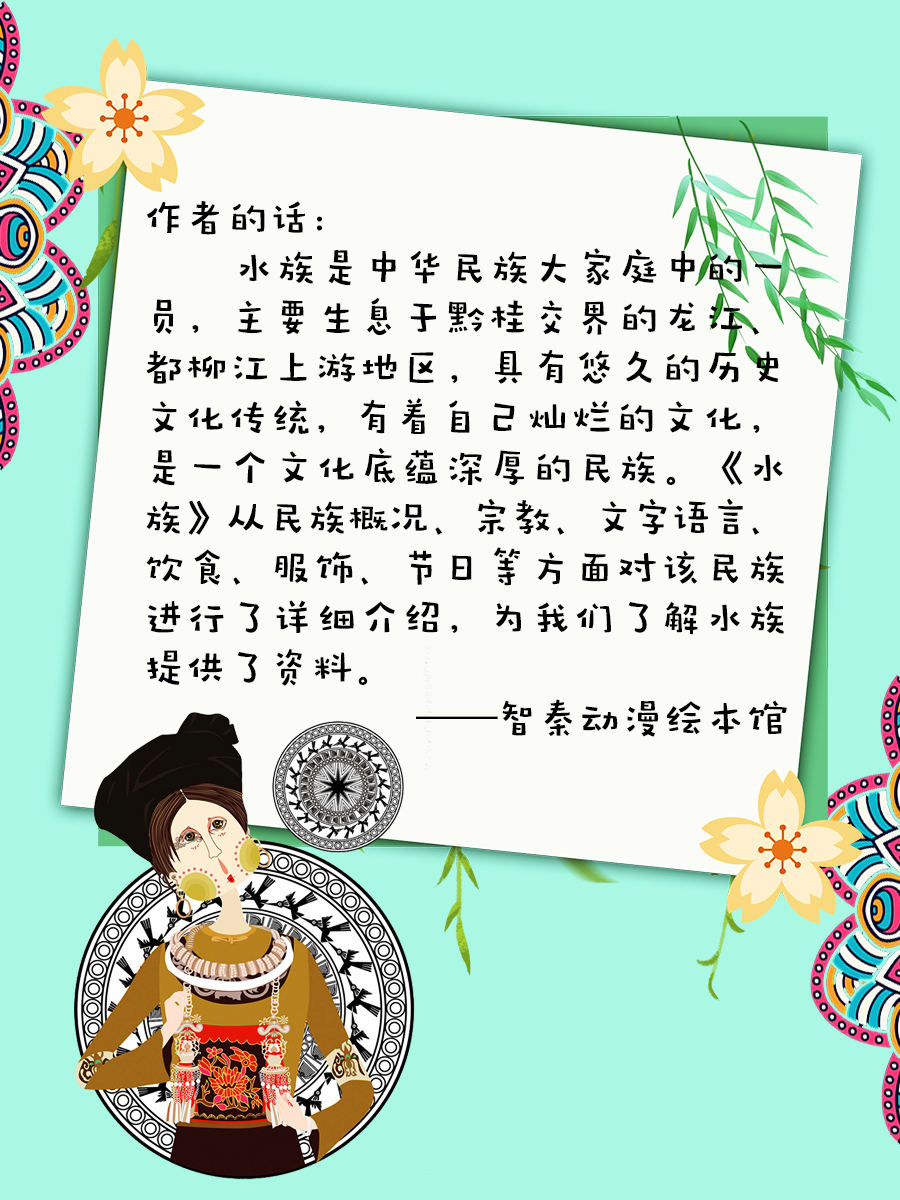 作者的话：
水族是中华民族大家庭中的一
员，主要生息于黔桂交界的龙江、
都柳江上游地区，具有悠久的历史
文化传统，有着自己灿烂的文化，
是一个文化底蕴深厚的民族。《水
族》从民族概况、宗教、文字语言、
饮食、服饰、节日等方面对该民族
进行了详细介绍，为我们了解水族
提供了资料。
——智秦动漫绘本馆